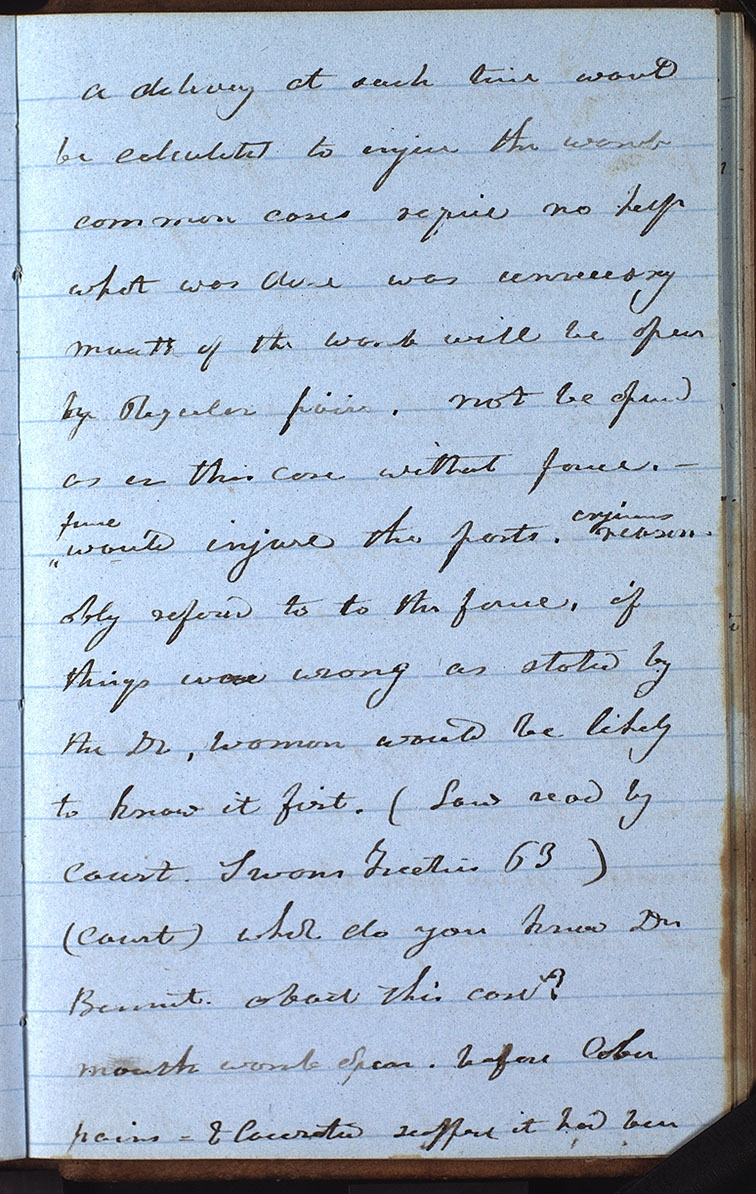 a delivery at such time would
be calculated to injure the womb
common cases require no help
what was done was unnecessary
mouth of the womb will be open
by Regular pains. not be opened
as in this case without force. —
force injurious
" would injure the parts. reason-
ably refered to to the force. if
things were wrong as stated by
the Dr, woman would be likely
to know it first. ( Law read by
Court. Swans Treatise 63 )
(Court) what do you know Dr
Bennet. about this case?
mouth womb open. before Labor
pains = & lacerated suppose it had been